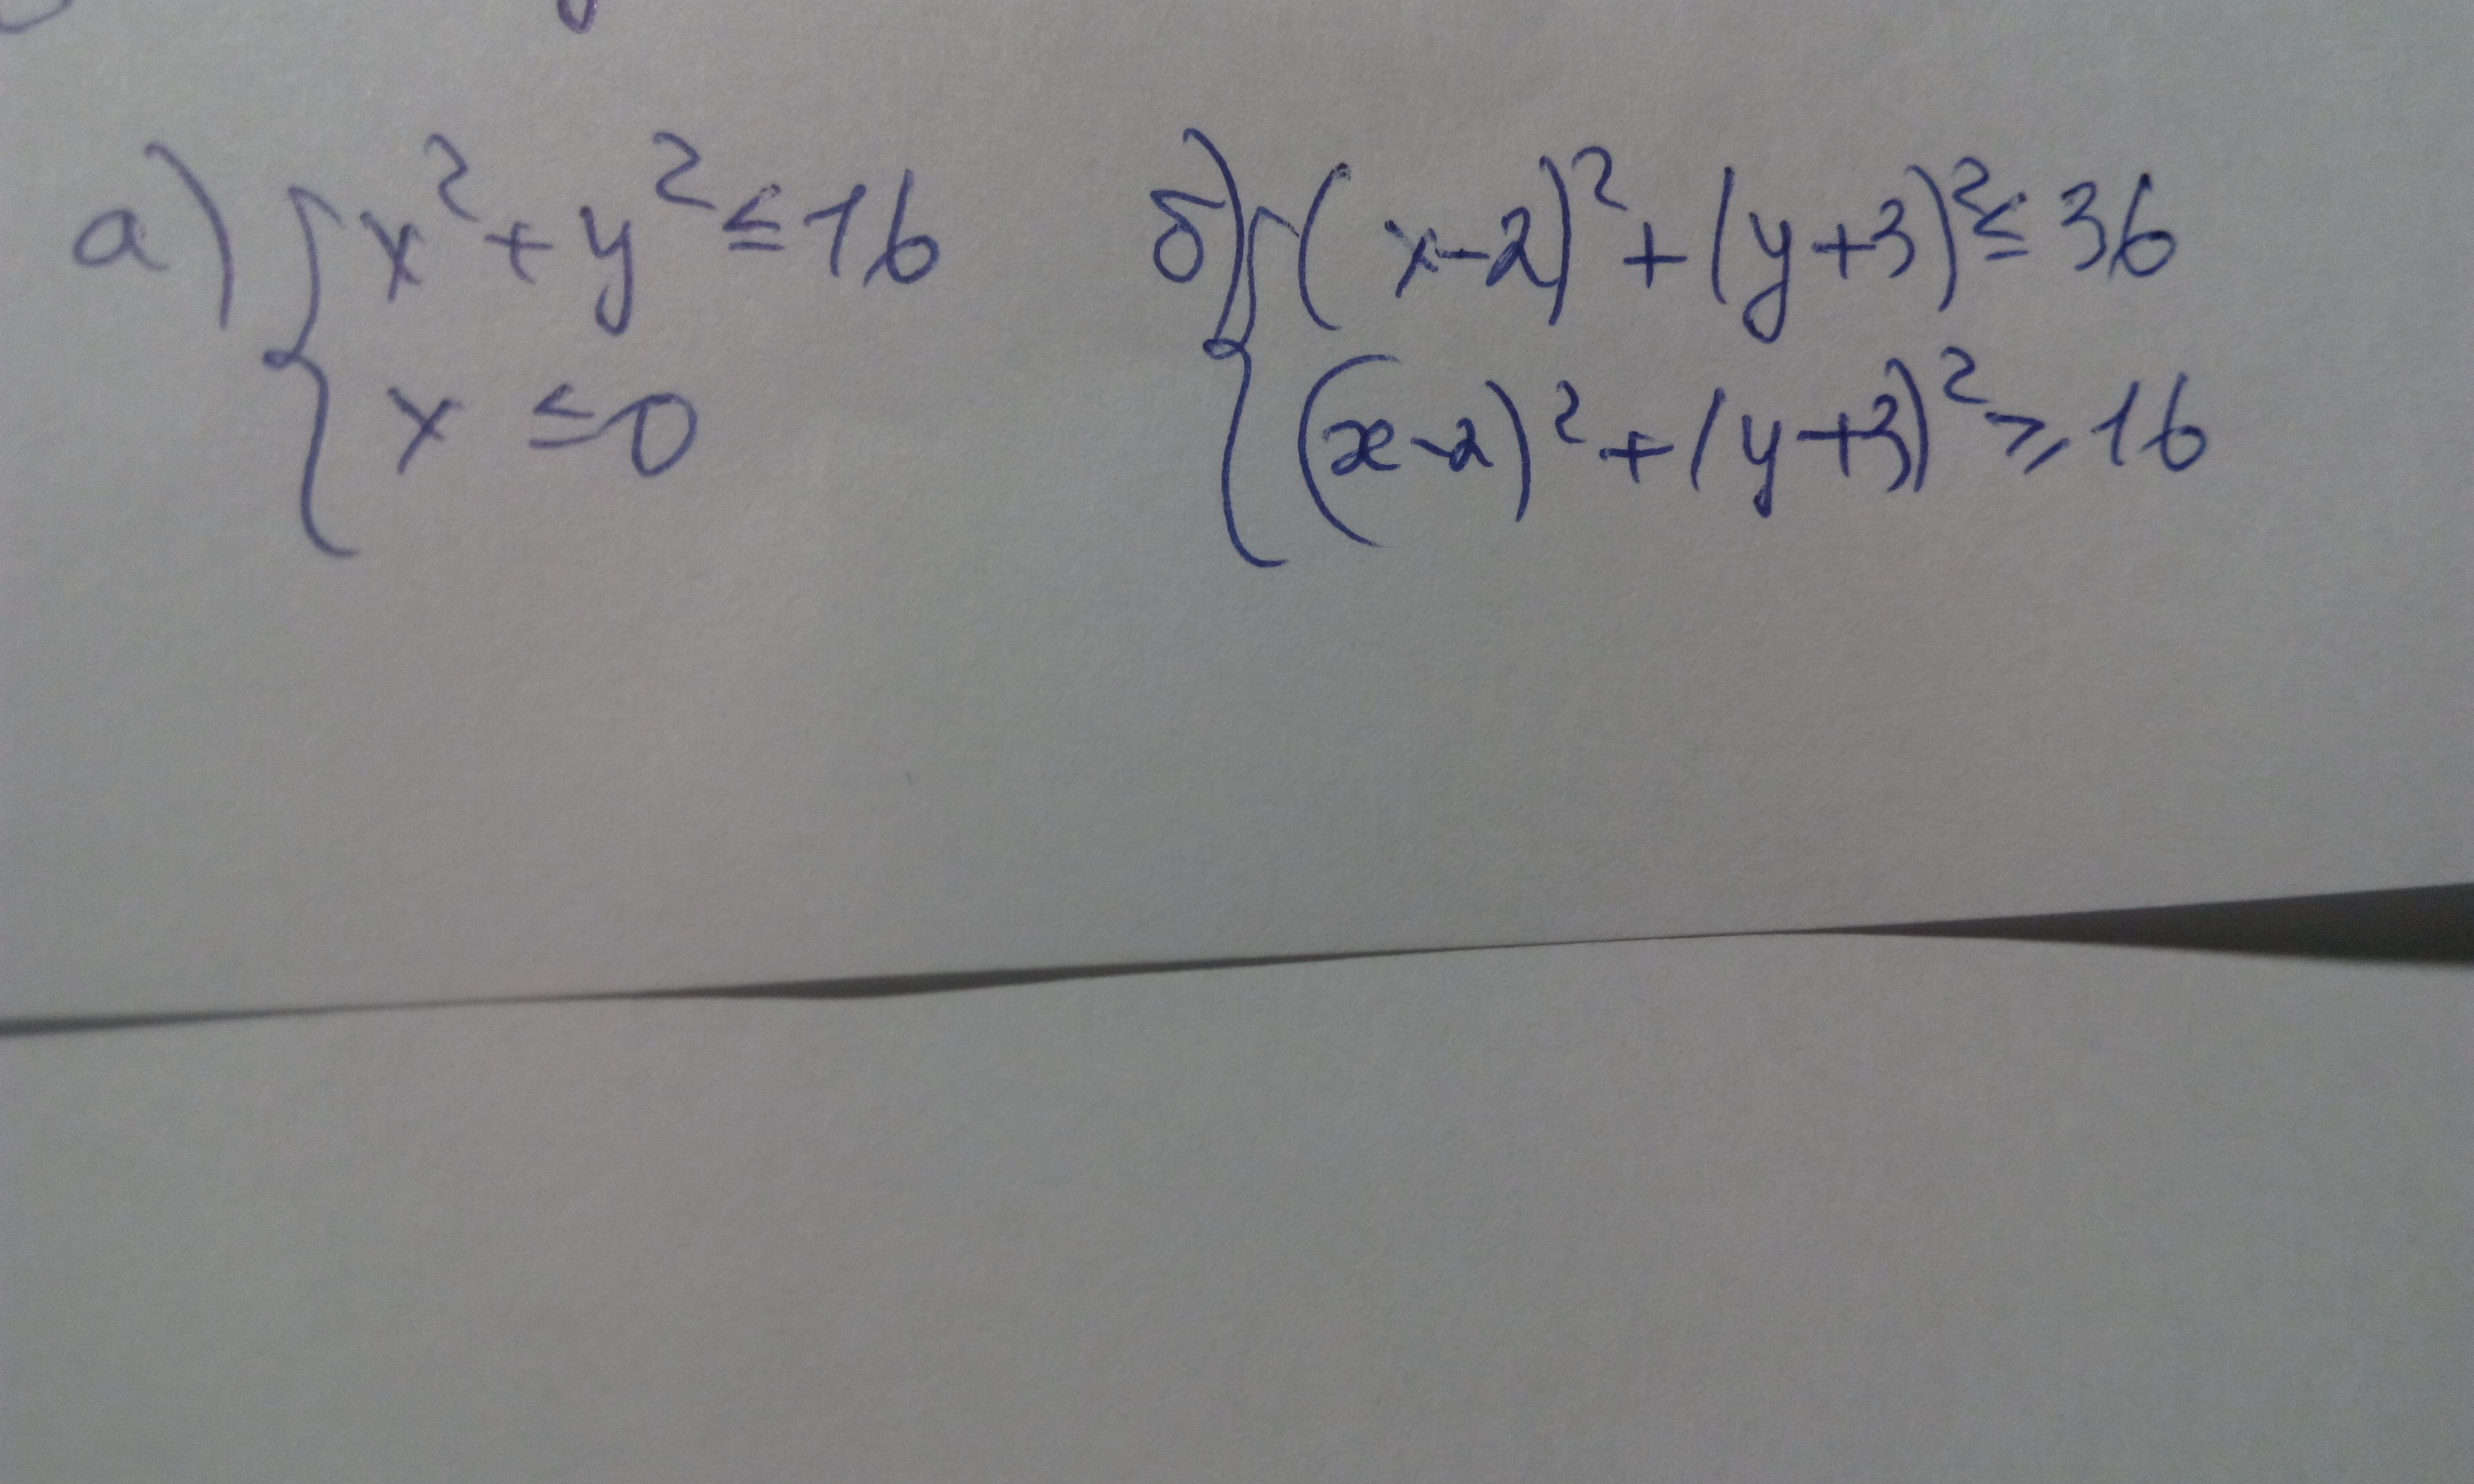 а) { x² + y² ≤ 16
x ≤ 0
б) { (x-2)² + (y+3)² ≤ 36
(x-2)² + (y+3)² ≥ 16